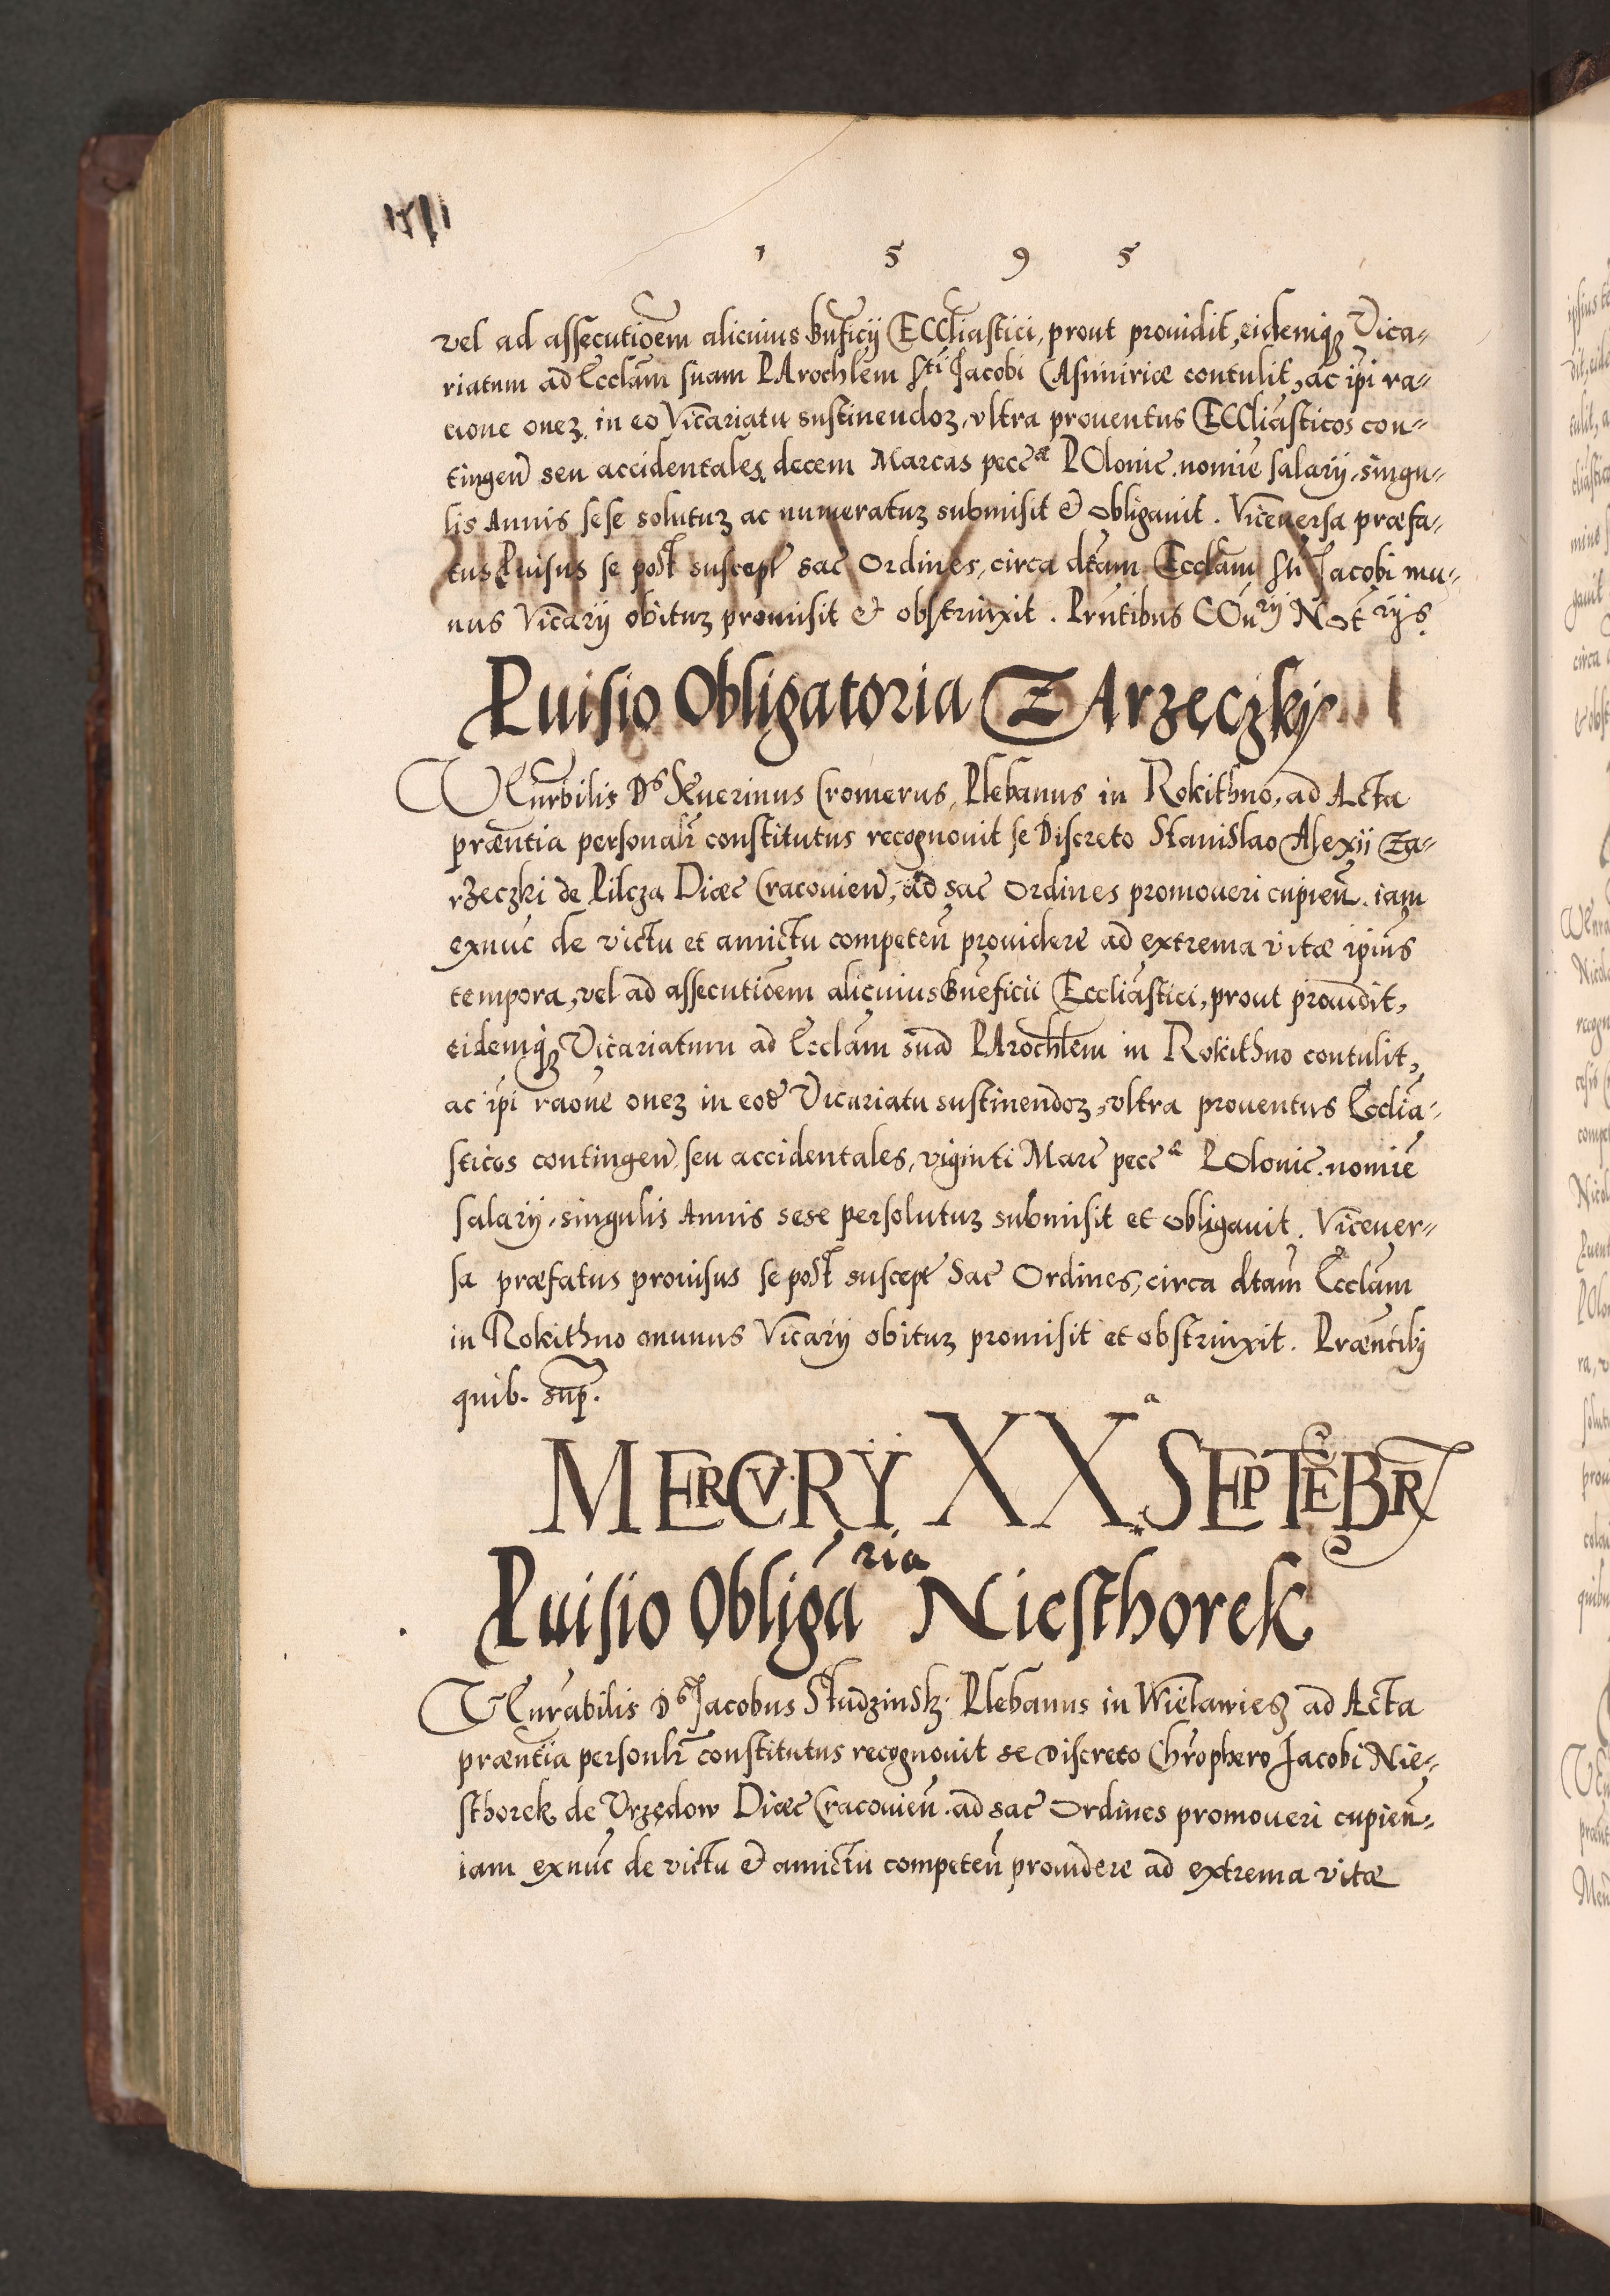 1 5 9 5
vel ad assecutiōem alicuius Bnficij ECCliastici, prout prouidit, eidemq₃ Vica-
riatum ad Ecclam suam PArochlem Sti Jacobi CAsimiriæ contulit, ac ipi ra-
cione oneꝝ in eo Vicariatu sustinendoꝝ, vltra prouentus ECCliasticos con-
tingen seu accidentales, decem Marcas pecc æ POlonic. nomīe salarij, singu-
lis Annis sese solutuꝝ ac numeratuꝝ submisit & obligauit. Viceuersa præfa-
tus Puisus se post suscept sac Ordines, circa dtam Ecclam Sti Jacobi mu-
nus Vicarij obituꝝ promisit & obstrinxit. Prntibus COn rij Not rijs.
Puisio Obligatoria ZArzęczky
VEnrbilis Ds Seuerinus Cromerus, Plebanus in Rokithno, ad Acta
præntia personalr constitutus recognouit se Discreto Stanislao Alexii Za-
rzeczki de Pilcza Diæc Cracouien, ad sac Ordines promoueri cupien. iam
exnūc de victu et amictu competen prouidere ad extrema vitæ ipius
tempora, vel ad assecutiōem alicuius Bneficii Eccliastici, prout prouidit,
eidemq₃ Vicariatum ad Ecclam suā PArochlem in Rokithno contulit,
ac ipi raōne oneꝝ in eodē Vicariatu sustinendoꝝ, vltra prouentus Ecclia-
sticos contingen seu accidentales, viginti Marc pecc æ POlonic. nomīe
salarij, singulis Annis sese persolutuꝝ submisit et obligauit. Viceuer-
sa præfatus prouisus se post suscept Sac Ordines, circa dtam Ecclam
in Rokithno onunus Vicarij obituꝝ promisit et obstrinxit. Præntibꝫ
quib. sup.
MERCVRY XX a SEPTEBR
Puisio Obliga ria Niesthorek
VEnrabilis Ds Jacobus Studzinsk. Plebanus in Wielawies ad Acta
præntia personlr constitutus recognouit se Discreto Chrophero Jacobi Nie-
sthorek de Vrzędow Diæc Cracouien. ad sac Ordines promoueri cupien.
iam exnūc de victu & amictu competen prouidere ad extrema vitæ